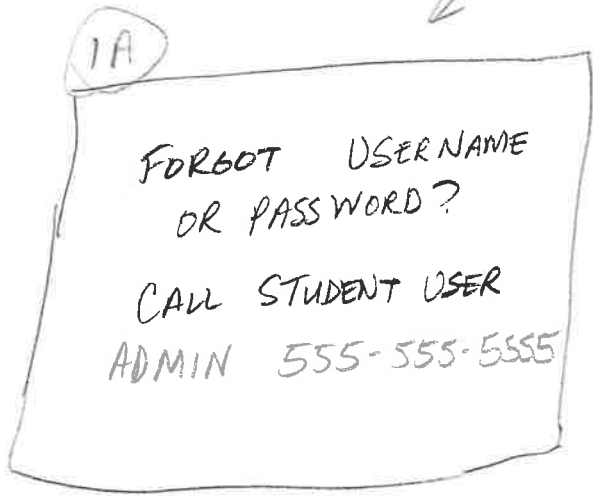 1A
FORGOT USERNAME
OR PASSWORD?
CALL STUDENT USER
ADMIN 555-555-5555